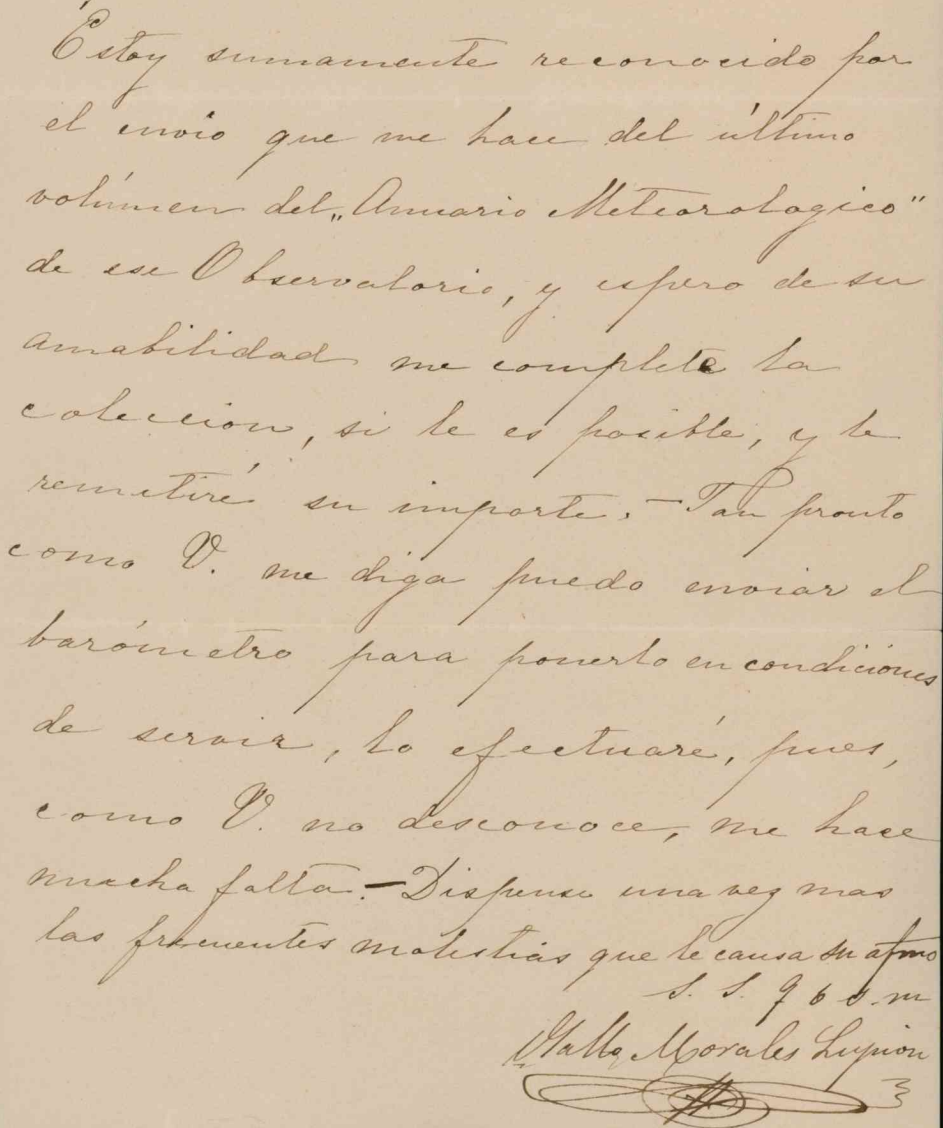 Estoy sumamente reconocido por
el envio que me hace del último
volúmen del „Anuario Meteorologico"
de ese Observatorio, y espero de su
amabilidad me complete la
coleccion, si le es posible, y le
remitiré su importe. – Tan pronto
como V. me diga puedo enviar el
barómetro para ponerlo en condiciones
de servir, lo efectuaré, pues,
como V. no desconoce, me hace
mucha falta. – Dispense una vez mas
las frecuentes molestias que le causa su afmo
S. S. q b s. m
Morales Lupion